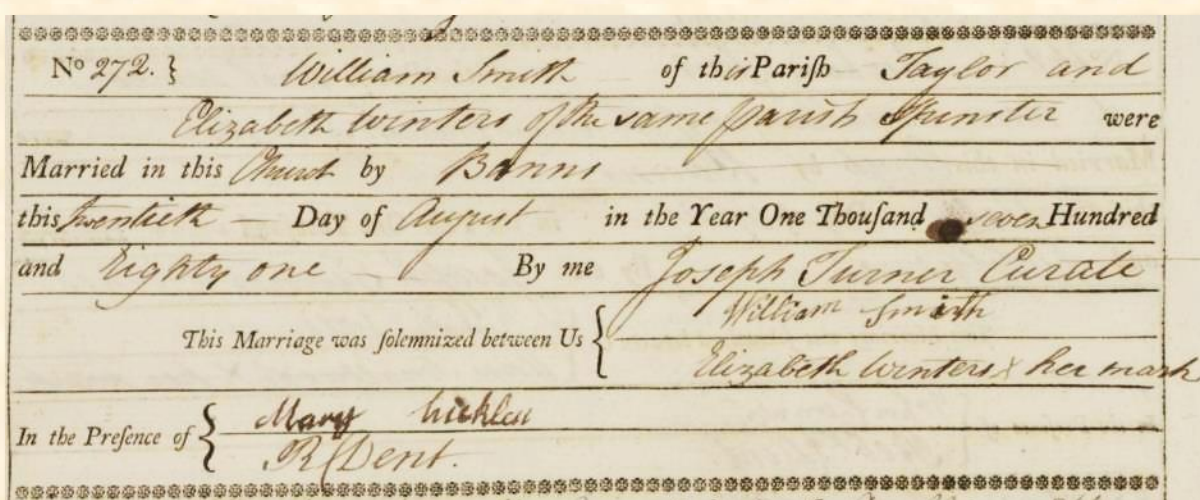 No 272. } William Smith of this Pariſh Taylor and
Elizabeth Winters of the same parish Spinster were
Married in this Church by Banns
this twentieth — Day of August in the Year One Thouſand seven Hundred
and Eighty one — By me Joseph Turner Curate
William Smith
This Marriage was ſolemnized between Us {
Elizabeth Winters X her mark
Mary
In the Preſence of {
R Dent.